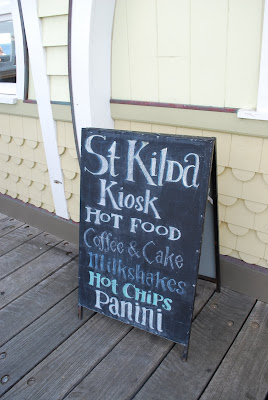 St Kilda
Kiosk
HOT FOOD
Coffee & Cake
Milkshakes
Hot Chips
Panini